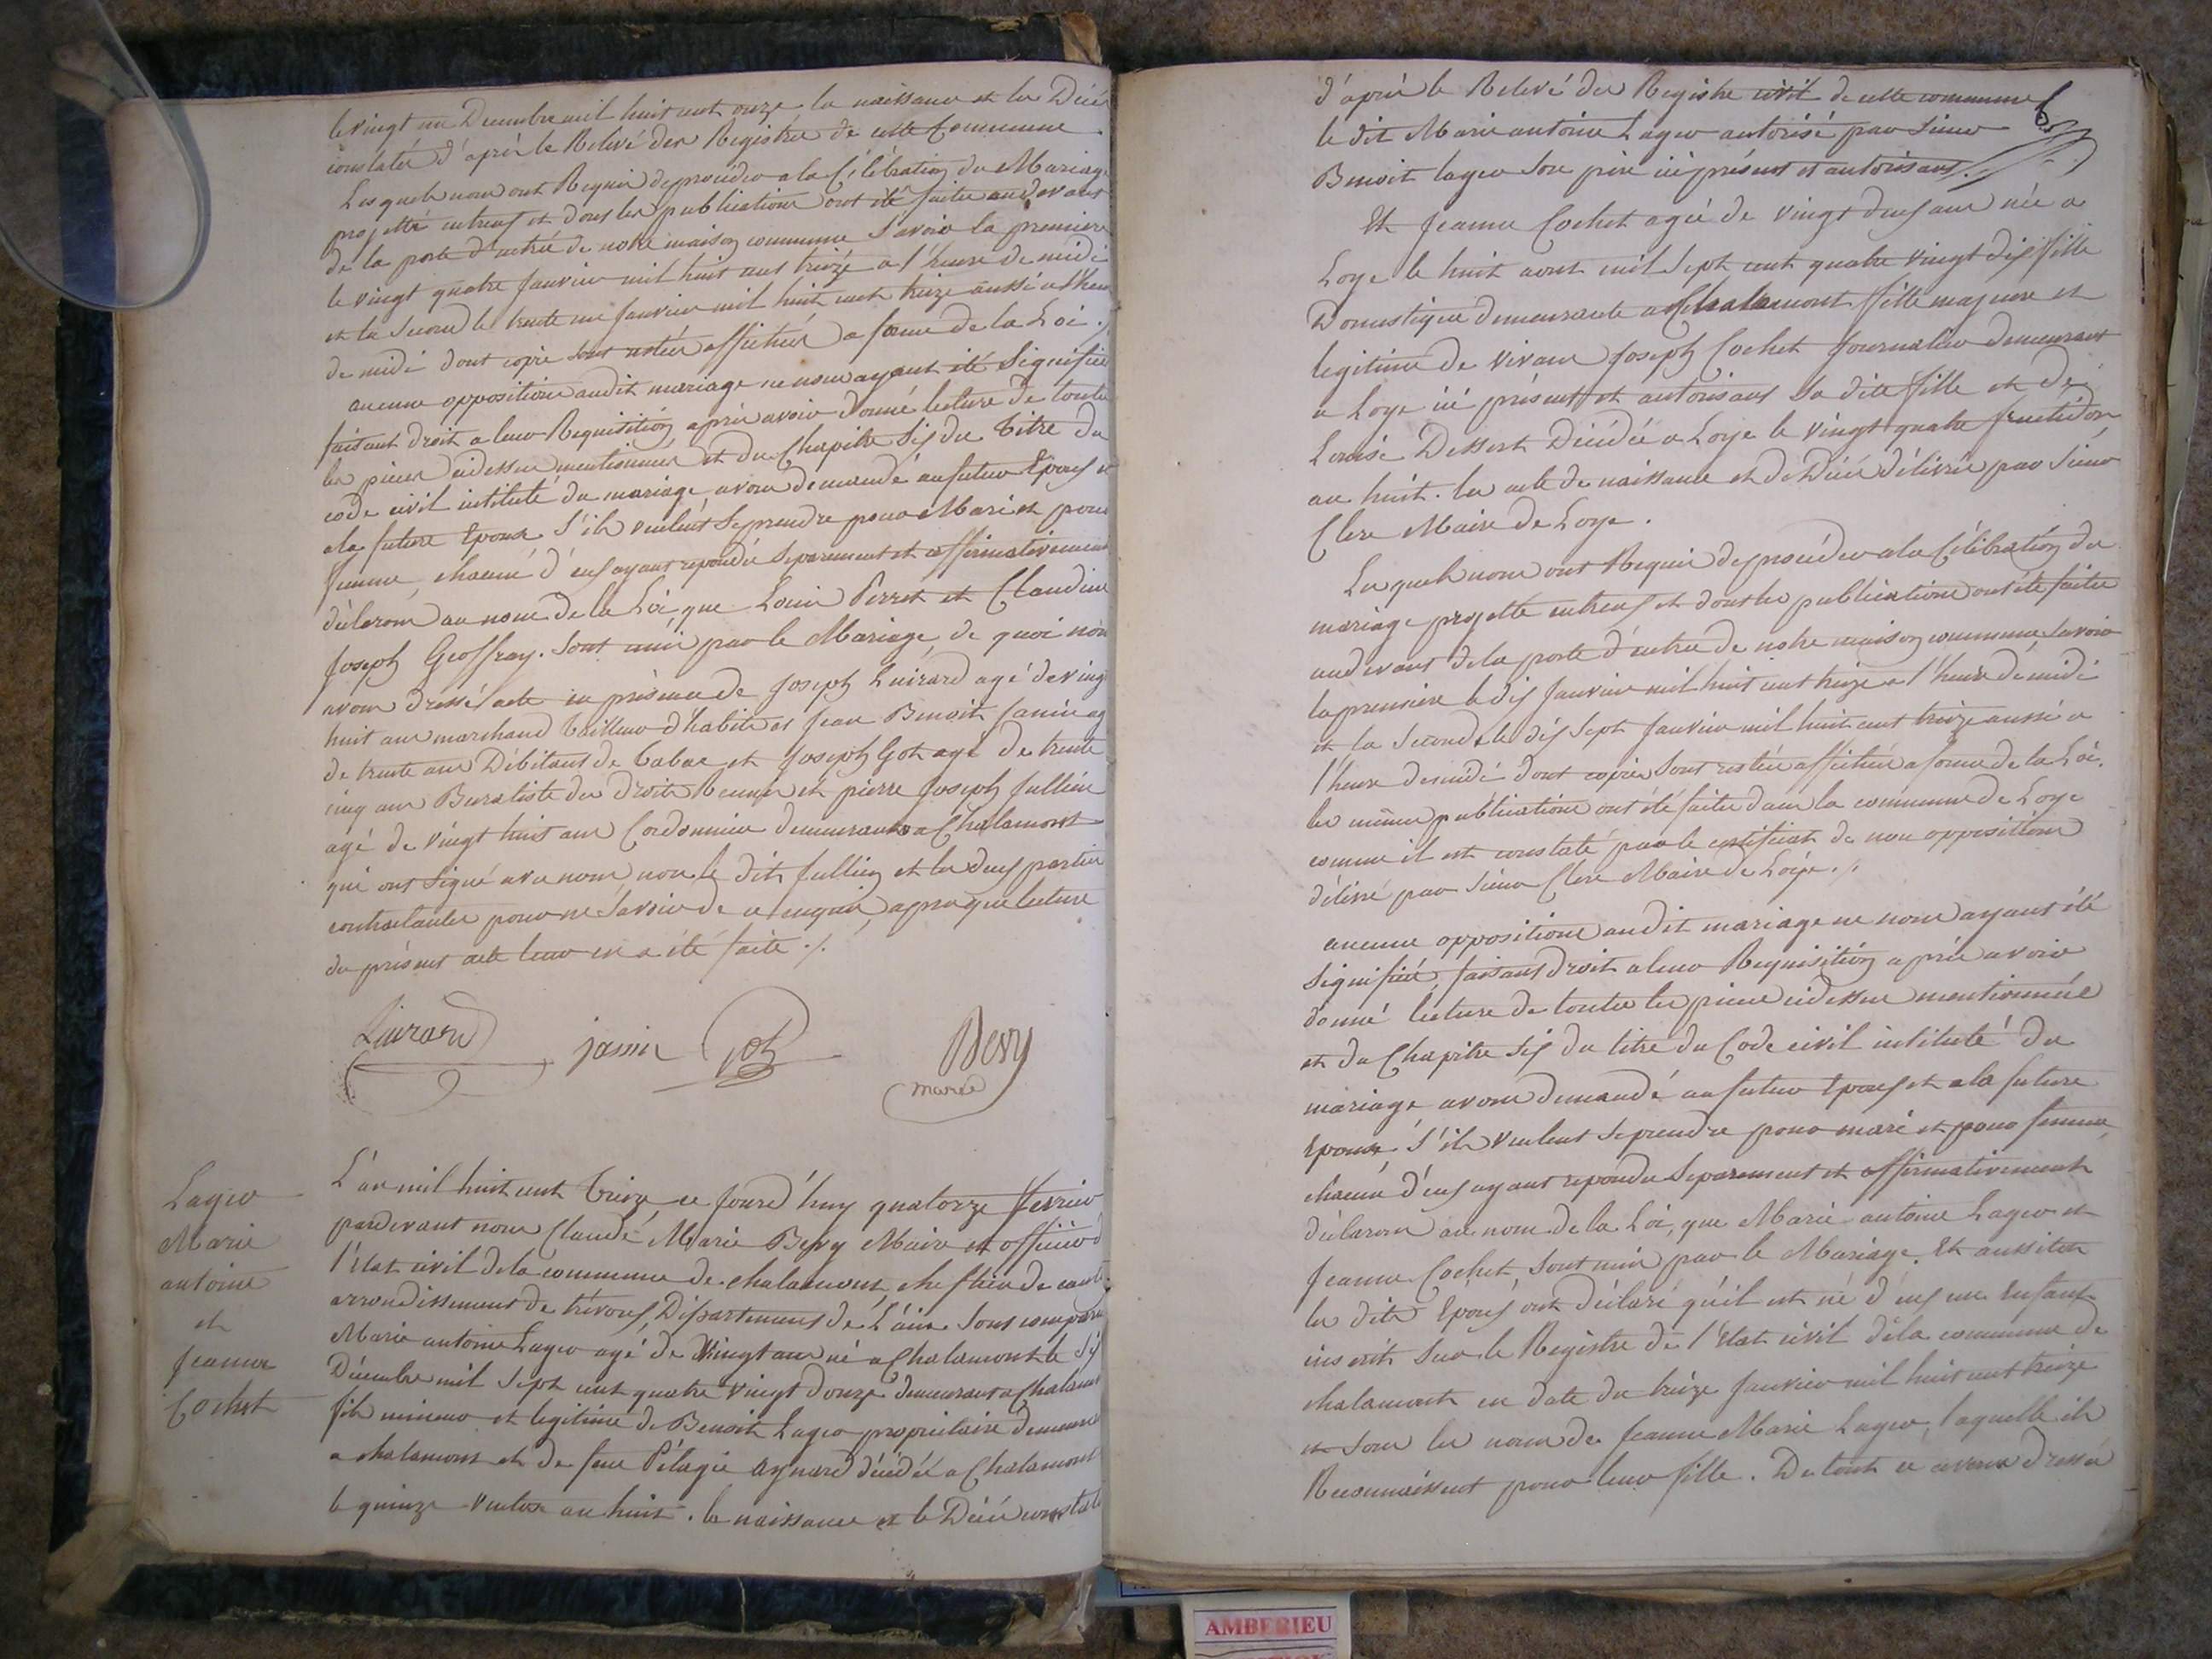 le vingt un Decembre mil huit cent onze la naissance et les Décès
constatés d'après le Relevé des Registres de cette Commune
Lesquels nous ont Requis de procéder a la Célébration du Mariage
projetté entreux et dont les publications ont été faites au devant
de la porte d'entrée de notre maison commune Savoir la premiere
le vingt quatre Janvier mil huit cent treize a l'heure de midi
et la Seconde le trente un Janvier mil huit cent treize aussi a l'heure
de midi dont copie sont restées affichées a forme de la Loi.
aucune opposition audit mariage ne nous ayant été Signifiée
faisant droit a leur Requisition après avoir donné lecture de toutes
les pieces cidessus mentionnées et du Chapitre Six du titre du
code civil intitulé du mariage, avons demandé au futur Epoux et
a la future Epouse S'ils veulent Se prendre pour Mari et pour
femme, chacun d'eux ayant repondu Separement et affirmativement
déclarons au nom de la Loi que Louis Perret et Claudine
Joseph Geoffray. Sont unis par le Mariage, de quoi nous
avons dressé acte en présence de Joseph Luirard agé de vingt
huit ans marchand tailleur d'habits et Jean Benoit Janin agé
de trente ans Débitant de tabac et Joseph Got agé de trente
cinq ans Buraliste des droits réunis et pierre Joseph Jullien
agé de vingt huit ans Cordonnier demeurants a Chalamont
qui ont Signé avec nous non le dit Jullien et les deux parties
contractantes pour ne Savoir de ce enquis, apres que lecture
du présent acte leur en a été faite ./.
Luirard janin Got Bevy
maire
Lager
Marie
antoine
et
Jeanne
Cochet
L'an mil huit cent treize ce Jourd'huy quatorze fevrier
pardevant nous Claude Marie Bevy Maire et officier d
l'Etat civil de la commune de chalamont, chef lieu de canton
arrondissement de trévoux, Dépsartement de L'ain Sont comparu
Marie antoine Lager agé de Vingt ans né a Chalamont le Six
Décembre mil Sept cent quatre vingt douze demeurant a Chalamont
fils mineur et legitime de Benoit Lager propriétaire demeurant
a chalamont et de feue Pélagie Aynard décédée a Chalamont
le quinze ventose an huit. la naissance et le Décès constatés
d'après le Relevé des Registre civil de cette commune
le dit Marie antoine Lager autorisé par Sieur
Benoit lager Son père ici présent et autorisant.
Et Jeanne Cochet agée de vingt deux ans née a
Loye le huit aout mil Sept cent quatre vingt dix fille
Domestique demeurante a Chalamont fille majeure et
legitime de vivant Joseph Cochet Journalier demeurant
a Loye ici présent et autorisant Sa dite fille et de
Louise Dessert Décédée a Loye le vingt quatre fructidor
an huit. les acte de naissance et de Décès délivrés par Sieur
Clerc Maire de Loye.
Lesquels nous ont Requis de procéder a la Célébration du
mariage projetté entreux et dont les publications ont été faites
au devant de la porte d'entrée de notre maison commune, Savoir
la premiere le dix Janvier mil huit cent treize a l'heure de midi
et la Seconde le dix Sept Janvier mil huit cent treize aussi a
l'heure de midi dont copies Sont restées affichées a forme de la Loi.
les mêmes publications ont été faites dans la commune de Loye
comme il est constaté par le certificat de non opposition
délivré par Sieur Clerc Maire de Loye ./.
aucune opposition audit mariage ne nous ayant été
Signifiée, faisant droit a leur Requisition après avoir
donné lecture de toutes les pieces cidessus mentionnées
et du Chapitre Six du titre du Code civil intitulé Du
mariage avons demandé au futur Epoux et a la future
Epouse, S'ils veulent Se prendre pour mari et pour femme,
chacun d'eux ayant repondu Separement et affirmativement
déclarons au nom de la Loi, que Marie antoine Lager et
Jeanne Cochet, Sont unis par le Mariage. Et aussitot
les dits Epoux ont déclaré qu'il est né d'eux un Enfant
inscrit Sur le Registre de l'Etat civil de la commune de
chalamont en date du treize Janvier mil huit cent treize
et Sous les noms de Jeanne Marie Lager, laquelle ils
Reconnaissent pour leur fille. De tout ce avons dressé
AMBERIEU